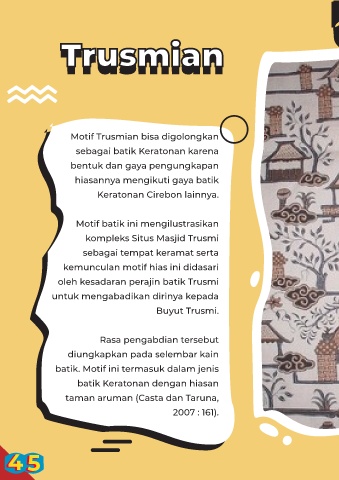 Trusmian
Motif Trusmian bisa digolongkan
sebagai batik Keratonan karena
bentuk dan gaya pengungkapan
hiasannya mengikuti gaya batik
Keratonan Cirebon lainnya.
Motif batik ini mengilustrasikan
kompleks Situs Masjid Trusmi
sebagai tempat keramat serta
kemunculan motif hias ini didasari
oleh kesadaran perajin batik Trusmi
untuk mengabadikan dirinya kepada
Buyut Trusmi.
Rasa pengabdian tersebut
diungkapkan pada selembar kain
batik. Motif ini termasuk dalam jenis
batik Keratonan dengan hiasan
taman aruman (Casta dan Taruna,
2007 : 161).
45